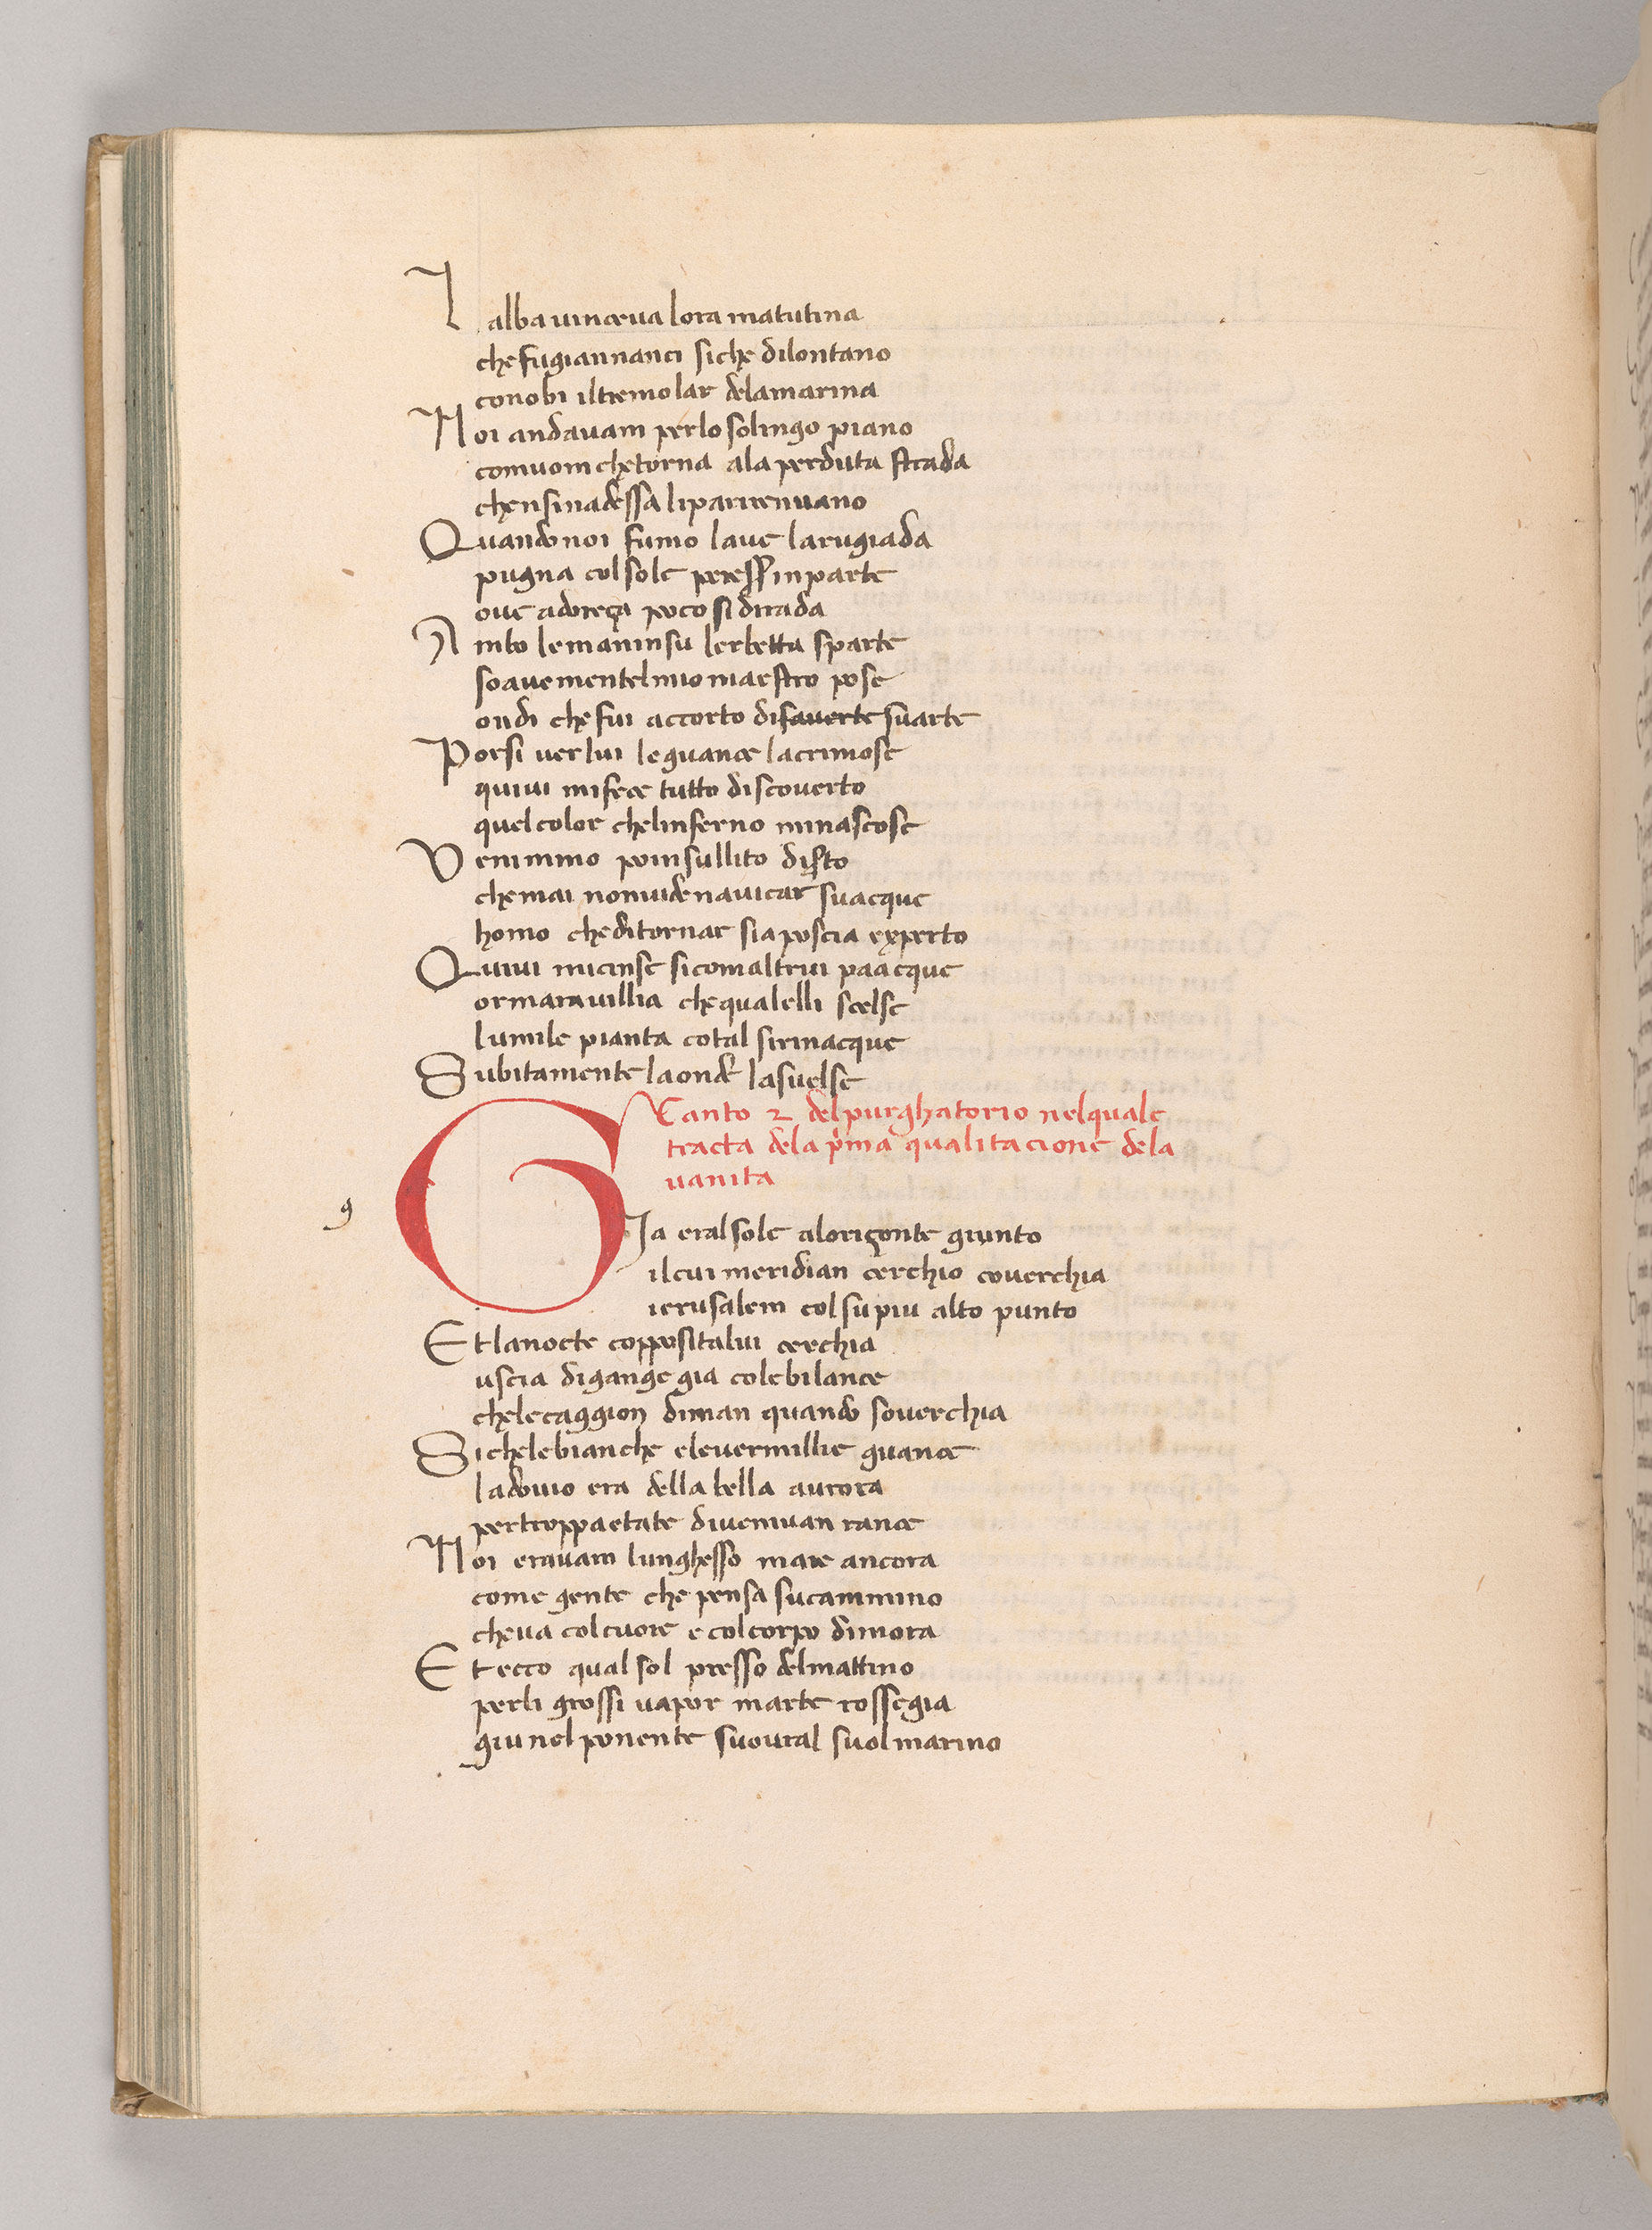 L alba uinceua lora matutina
che fugiannanci siche dilontano
conobi iltremolar delamarina
Noi andauam perlo solingo piano
comuom chetorna ala perduta strada
chensinadessa lipar ireinuano
Quando noi fumo laue larugiada
pugna col sole per esser in parte
oue adoreça poco si dirada
Ambo lemaninsu lerbetta sparte
soauementelmio maestro pose
ondi che fui accorto disauerte suarte
Porsi uer lui leguance lacrimose
quiui mifece tutto discouerto
quel color chelinferno minascose
Uenimmo poinsullito diserto
chemai nonuide nauicar suacque
homo cheditornar sia poscia experto
Quiui micinse sicomaltrui piacque
o rmarauillia chequalelli scelse
lumile pianta cotal sirinacque
Subitamente laonde lasuelse
Canto 2 del purghatorio nelquale
tracta dela pma qualitacione dela
uanita
9
Gia eralsole aloriçonte giunto
ilcui meridian cerchio couerchia
ierusalem col su piu alto punto
Et lanocte coppositalui cerchia
uscia digange gia colebilance
chelecaggion diman quando souerchia
Sichelebianche eleuermillie guance
ladouio era della bella aurora
pertroppaetate diueniuan rance
Noi erauam lunghesso mare ancora
come gente che pensa sucammino
cheua colcuore e colcorpo dimora
Et ecco qual sol presso delmattino
perli grossi uapor marte rossegia
giu nel ponente suoural suol marino